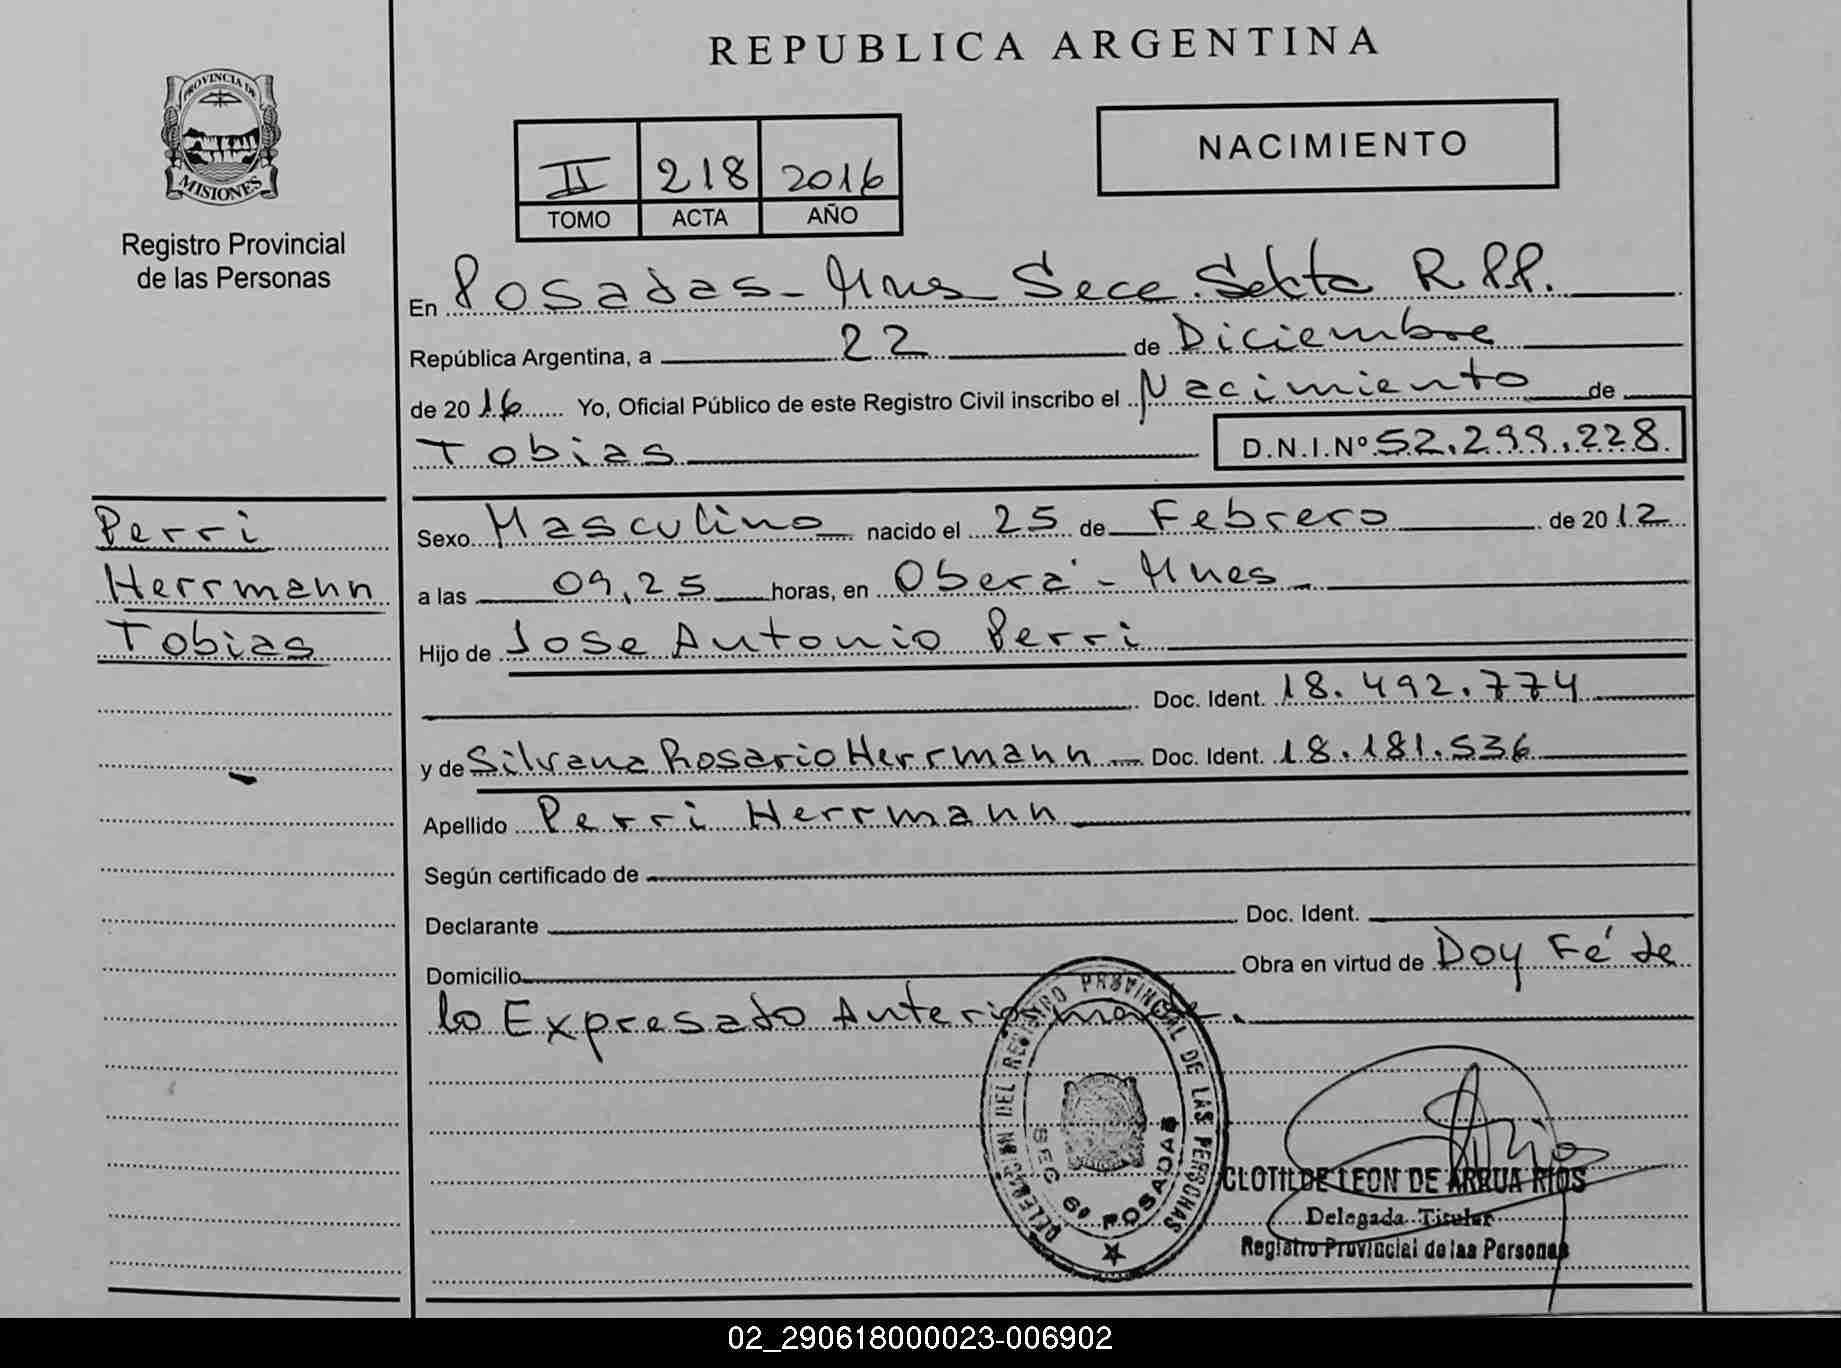 REPUBLICA ARGENTINA
PROVINCIA DE
MISIONES
Registro Provincial
de las Personas
II 218 2016
TOMO ACTA AÑO
NACIMIENTO
En Posadas - Mnes Secc. Sexta R.P.P.
República Argentina, a 22 de Diciembre
de 2016 Yo, Oficial Público de este Registro Civil inscribo el Nacimiento de
Tobias D.N.I.Nº 52.299.228
Perri
Herrmann
Tobias
Sexo Masculino nacido el 25 de Febrero de 2012
a las 09,25 horas, en Oberá - Mnes
Hijo de Jose Antonio Perri
Doc. Ident. 18.492.774
y de Silvana Rosario Herrmann Doc. Ident. 18.181.536
Apellido Perri Herrmann
Según certificado de
Declarante Doc. Ident.
Domicilio Obra en virtud de Doy Fé de
lo Expresado Anteriormente.
DELEGACION DEL REGISTRO PROVINCIAL DE LAS PERSONAS
SEC 6ª POSADAS
CLOTILDE LEON DE ARRUA RIOS
Delegada Titular
Registro Provincial de las Personas
02_290618000023-006902